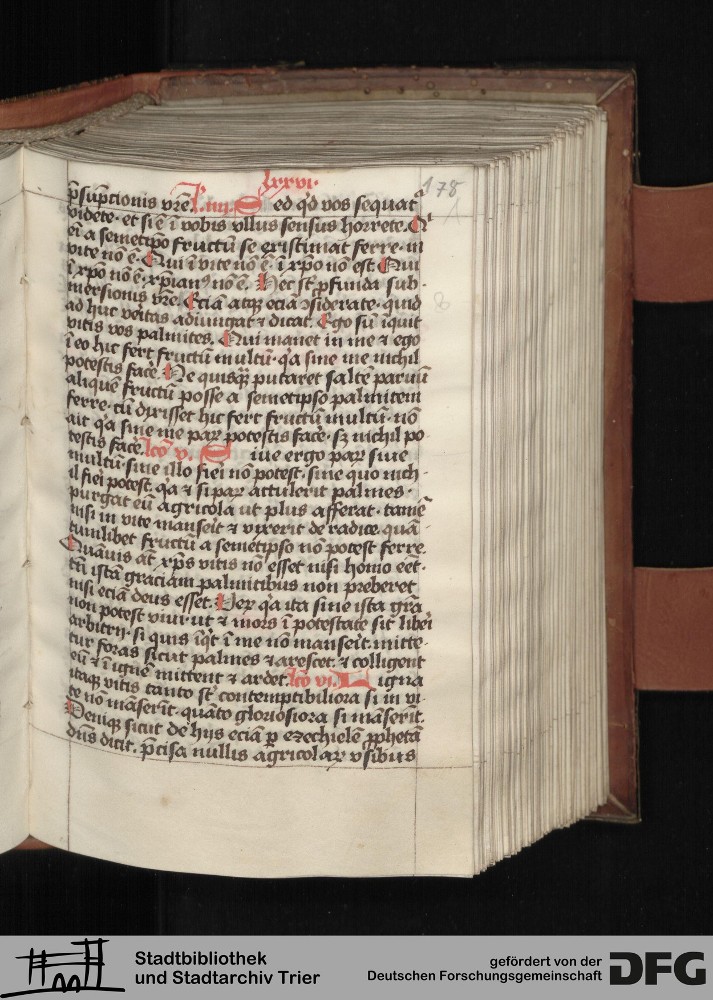 lxxvi.
178
p̄sūpcionis vr̄e. l. iiij. Sed qd vos sequat᷑
videte. et si ē ī vobis vllus sensus horrete. Qi
ei a semetip̄o fructū se existimat ferre. in
vite nō ē. Qui ī vite nō ē. ī xp̄o nō est. Qui
ī xp̄o nō ē. xp̄ianꝰ nō ē. Hec st̄ pfunda sub-
mersionis vr̄e. Eciā atqꝫ eciā ꝯsiderate. quid
ad huc veritas adiungat ⁊ dicat. Ego sū īquit
vitis vos palmites. Qui manet in me ⁊ ego
ī eo hic fert fructū multū. qꝛa sine me nichil
potestis face̅. Ne quisqꝫ putaret saltē paruū
aliquē fructū posse a semetipso palmitem
ferre. cū dixisset hic fert fructū multū. nō
ait qꝛa sine me paꝝ potestis face̅. sꝫ nichil po
testis face̅. lco v. Siue ergo paꝝ siue
multū. sine illo fiei nō potest. sine quo nich-
il fiei potest. qꝛa ⁊ si paꝝ attulerit palmes.
purgat eū agricola ut plus afferat. tamē
nisi in vite manseīt ⁊ vixerit de radice. quā-
tumlibet fructū a semetipso nō potest ferre.
Quāuis at̄ xp̄s vitis nō esset nisi homo eēt.
tn̄ istā graciam palmitibus non preberet
nisi eciā deus esset. Veꝝ qꝛa ita sine ista gr̄a
non potest viui. ut ⁊ mors ī potestate sit liberi
arbitrii. si quis īq̄t ī me nō manseīt. mitte-
tur foras sicut palmes ⁊ arescet. ⁊ colligent
eū ⁊ ī ignē mittent ⁊ ardet. lco vi. Ligna
itaqꝫ vitis tanto st̄ contemptibiliora si in vi-
te nō māserīt. quāto gloriosiora si māserīt.
Deniqꝫ sicut de hijs eciā ꝑ ezechielē ꝓphetā
dn̄s dicit. p̄cisa nullis agricolaꝝ vsibus
Stadtbibliothek
und Stadtarchiv Trier
gefördert von der
Deutschen Forschungsgemeinschaft
DFG